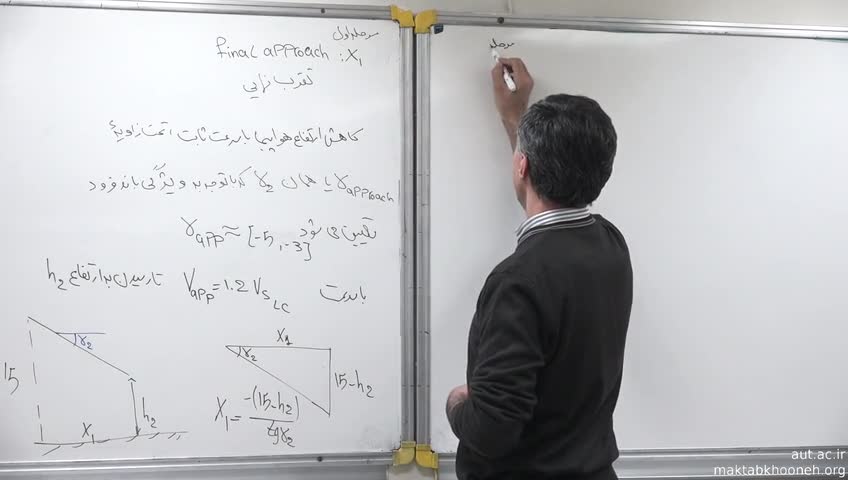 مرحله اول
final approach : X₁
تقرب نهایی
کاهش ارتفاع هواپیما با سرعت ثابت تحت زاویهٔ
γapproach یا همان γ₂ که با توجه به ویژگی باند فرود
تعیین می شود γapp ≈ [-5, -3]
با سرعت Vapp = 1.2 VsLC تا رسیدن به ارتفاع h₂
γ₂
15
h₂
X₁
X₁
γ₂
15-h₂
X₁ = -(15-h₂) / tgγ₂
مرحله
aut.ac.ir
maktabkhooneh.org